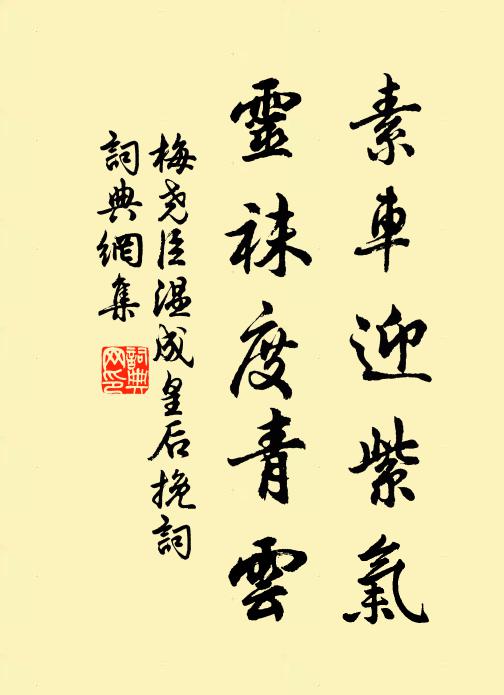 素車迎紫氣
靈祙度青雲
梅堯臣温成皇后挽詞
詞典網集
詞典网印